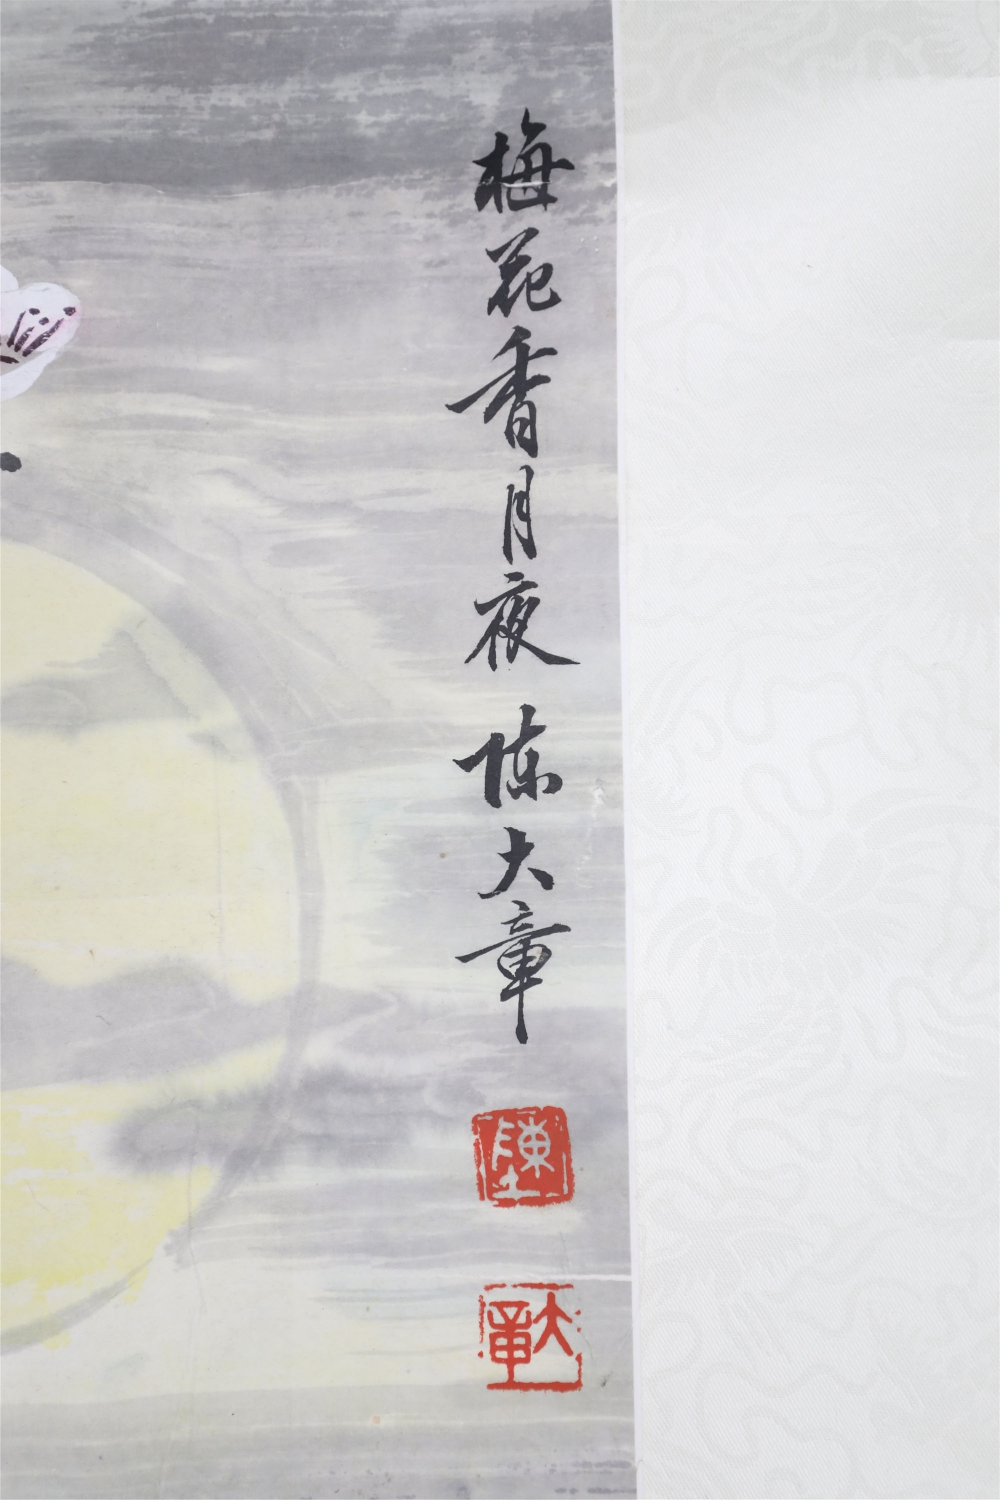 梅花香月夜 陈大章
陳
大章